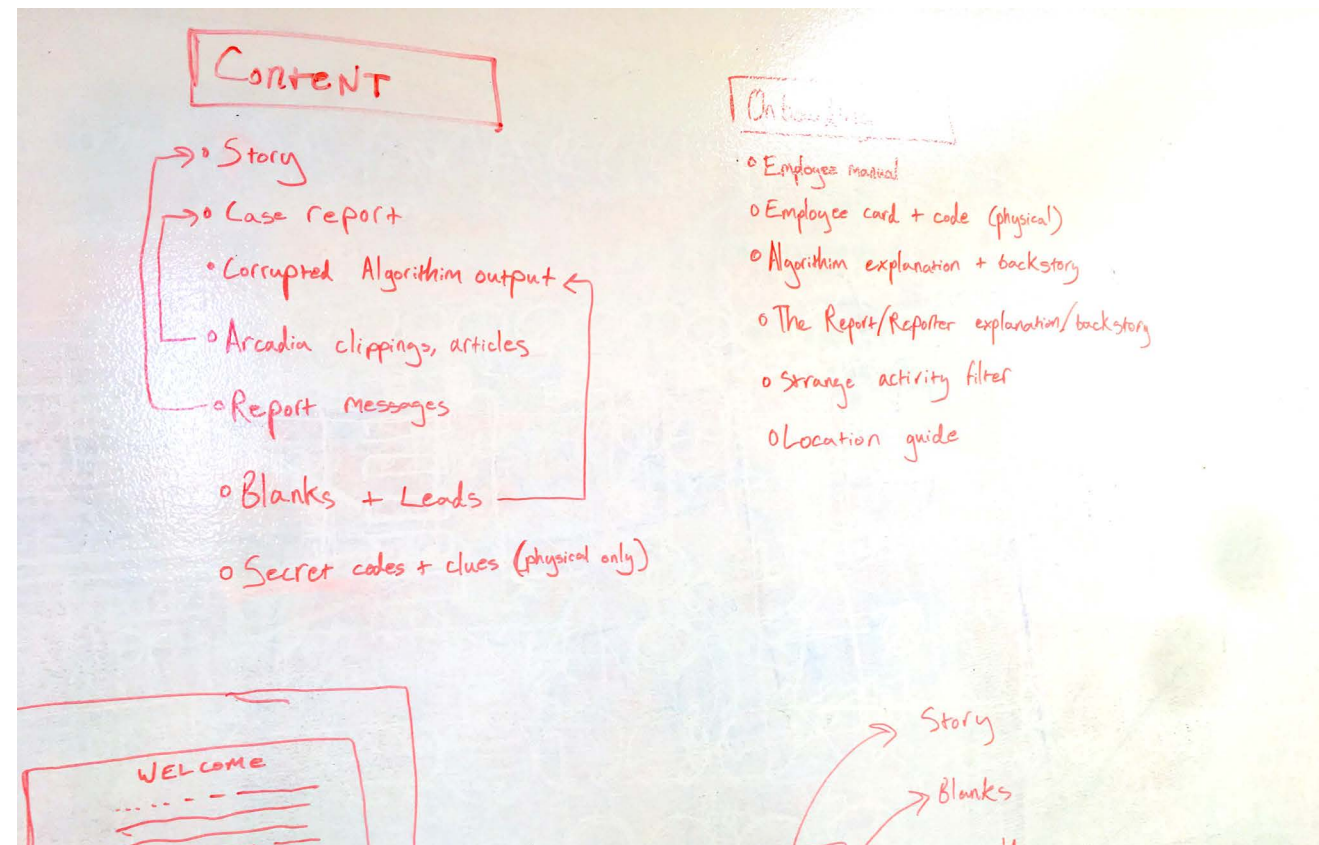 CONTENT
Story
Case report
Corrupted Algorithim output
Arcadia clippings, articles
Report messages
Blanks + Leads
Secret codes + clues (physical only)
Onboarding
Employee manual
Employee card + code (physical)
Algorithim explanation + backstory
The Report/Reporter explanation/backstory
Strange activity filter
Location guide
WELCOME
Story
Blanks